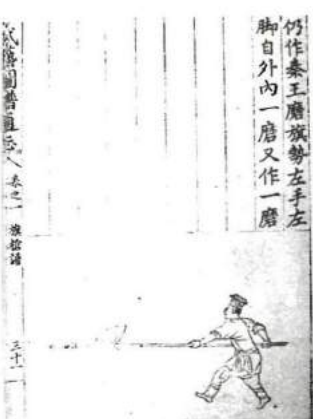 仍作秦王磨旗勢左手左
脚自外内一磨又作一磨
武藝圖譜通志 卷之一 旗槍譜 三十一